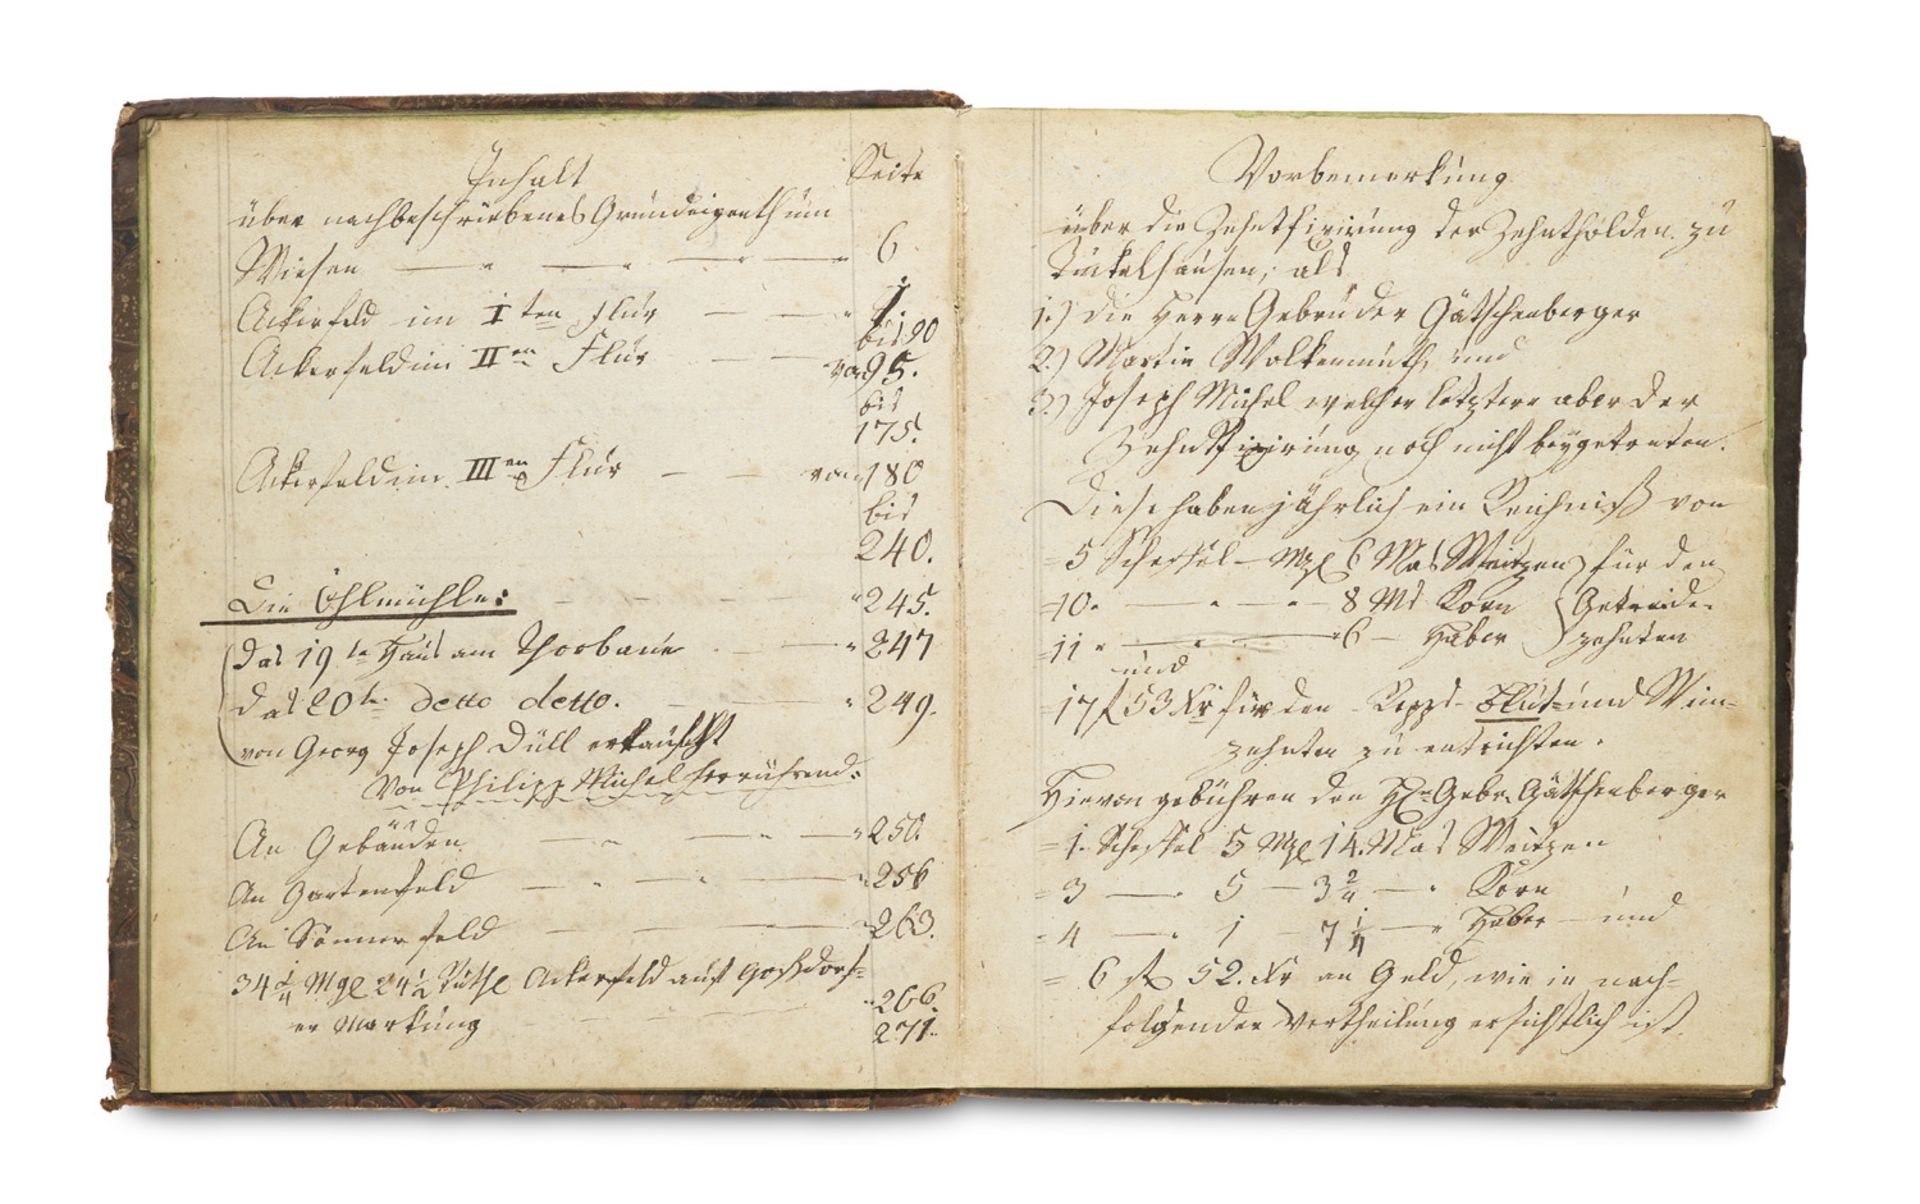 Inhalt Seite
über nachbeschriebenes Grundeigenthum
Wiesen — " — " — " — " 6
Ackerfeld im I ten Flur — — "
bis 90
Ackerfeld im II en Flur — — von 95.
bis
175.
Ackerfeld im III en Flur — — von 180
bis
240.
Die Öhlmühle: — — — " 245.
das 19 te Haus am Thorbaue — — " 247
das 20 te detto detto. — — " 249.
von Georg Joseph Düll erkauft
Von Philipp Michel herrührend:
An Gebäuden — " — " — " 250.
An Gartenfeld — " — " — " 256
An Sommerfeld — — — " 263.
34 1/4 Mgl 24 1/2 Ruthe Ackerfeld auf Goßdorf=
er Markung — — — " 266.
271.
Vorbemerkung
über die Zehntfixirung der Zehntholden zu
Tückelhausen, als
1.) die Herrn Gebrüder Gätschenberger
2.) Martin Wolkenmuth, und
3.) Joseph Michel welcher letztere aber der
Zehntfixirung noch nicht beygetreten.
Diese haben jährlich ein Reichniß von
= 5 Scheffel — Mzl 6 Mas Weitzen } für den
= 10 " — " — " — 8 Ms Korn } Getreide=
= 11 " — " — " 6 — Haber } zehnten
und
= 17 f 53 Xr für den Repps- Blut= und Wein=
zehnten zu entrichten.
Hievon gebühren den Hn Gebr. Gätschenberger
= 1. Scheffel 5 Mzl 14. Mas Weitzen
= 3 — " 5 — 3 2/4 — " Korn
= 4 — " 1 — 7 1/4 — " Haber — und
= 6 f 52. Xr an Geld, wie in nach=
folgender Vertheilung ersichtlich ist.